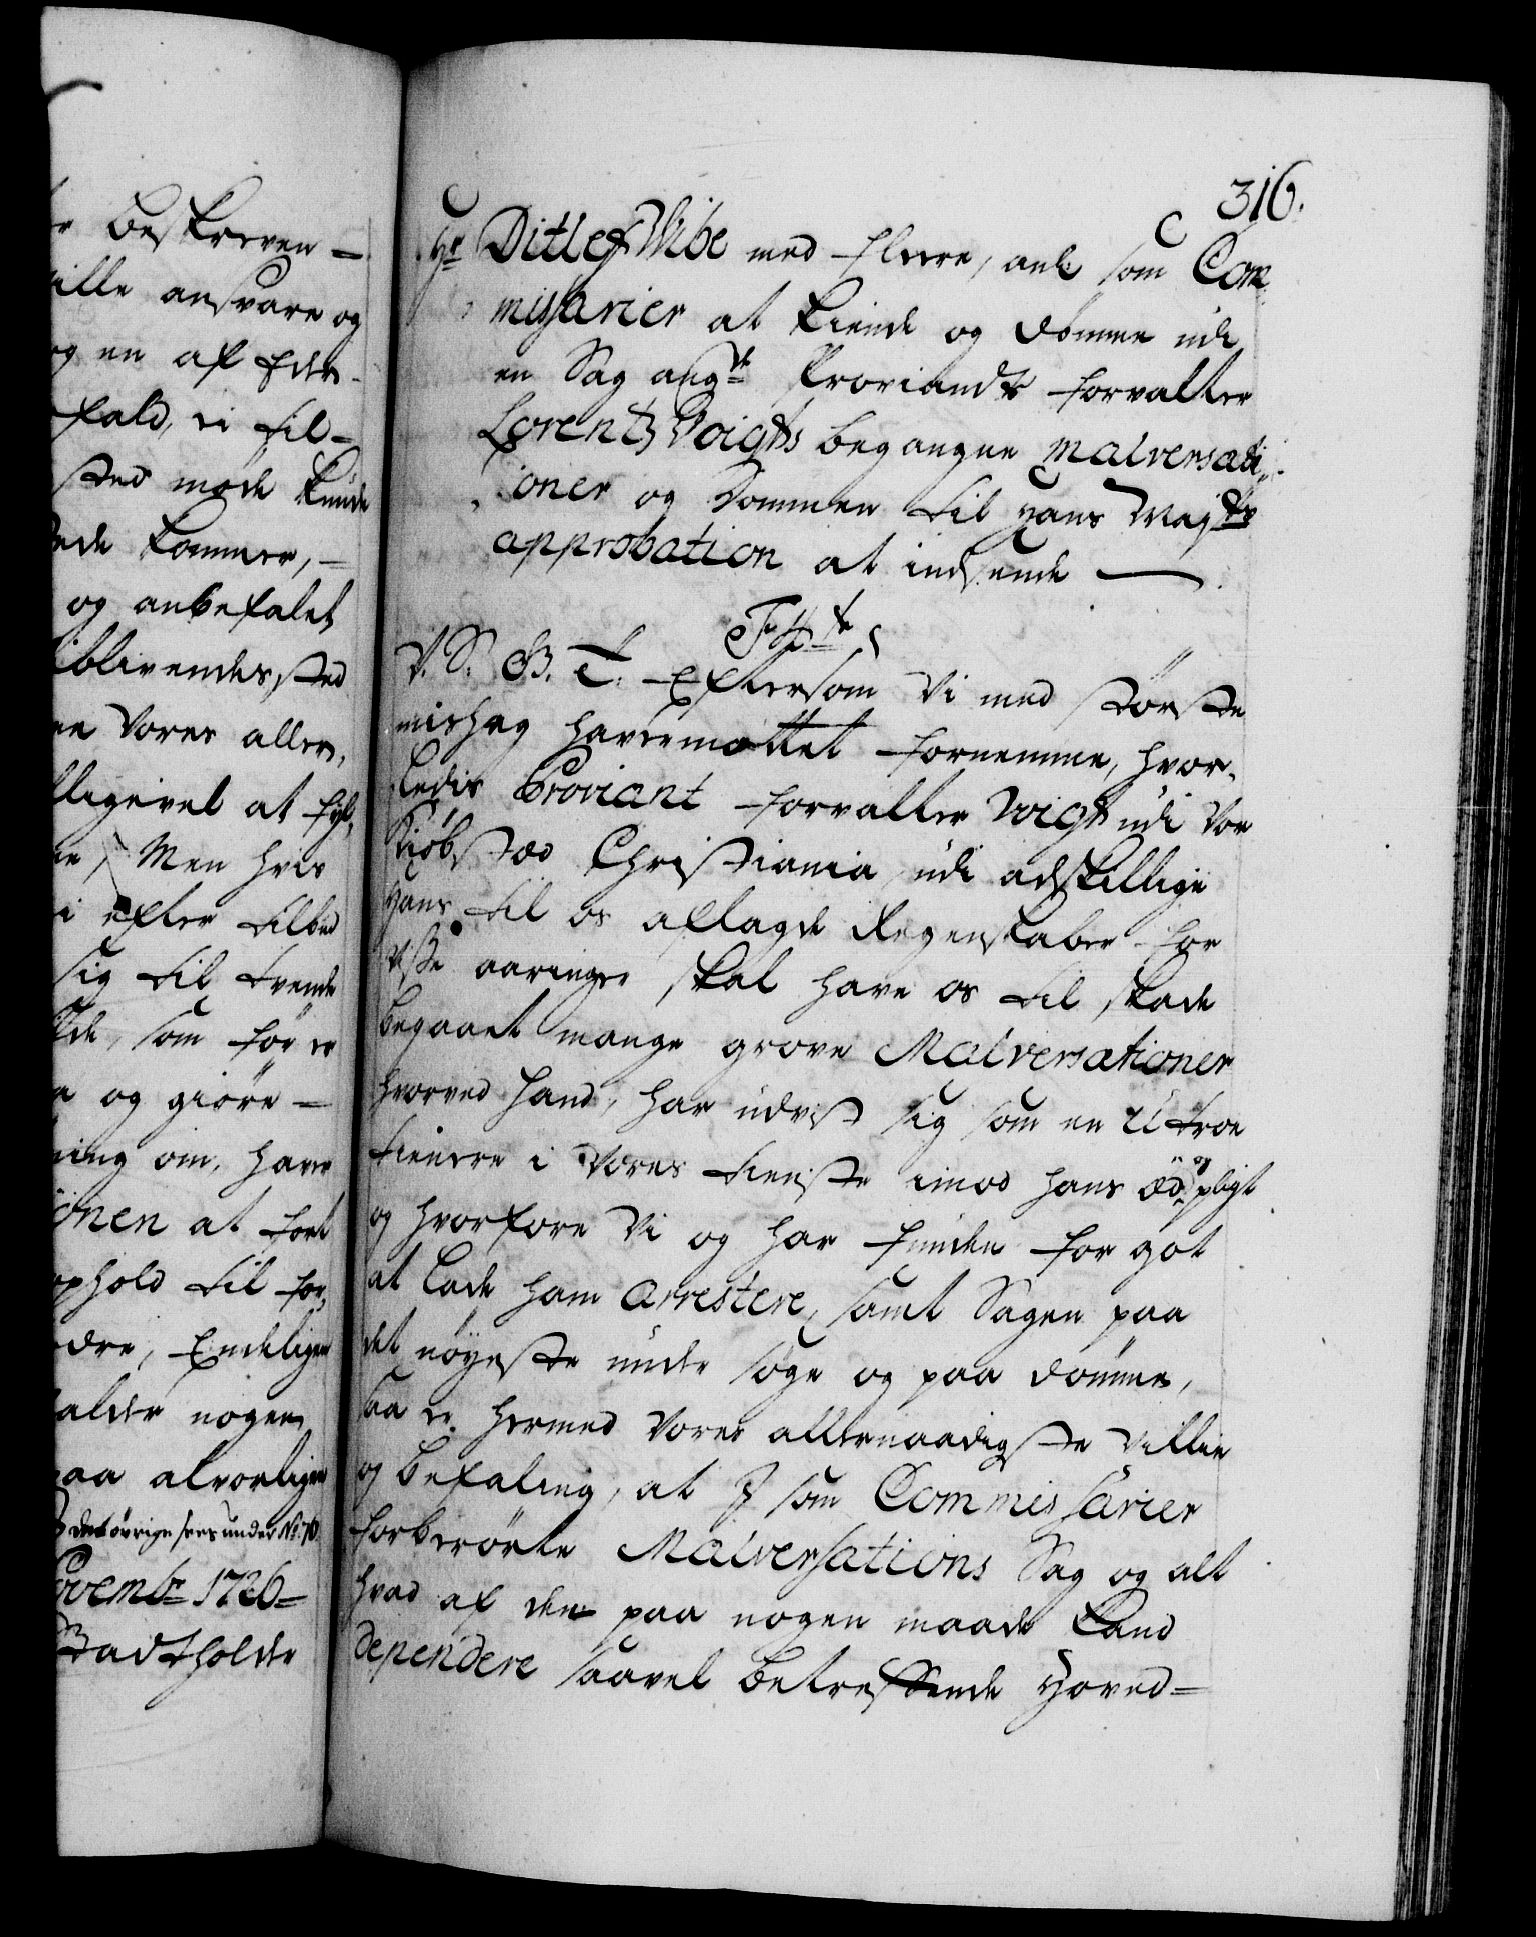 r beskreven =
ville ansvare og
og en af Eder
fald, ei til-
sted møde kunde
stede kommer, -
og anbefalet
blivendes sted
en Vores aller,
lligevel at fyl,
ne, Men hvis
i efter tilbud
sig til trende
lde, som før er
n og giøre =
ning om, have
onen at fort
ophold til for,
dre, Endeligen
falder nogen
paa alvorligen
det øvrige sees under No. 70.
Novembr 1726 =
Stadtholder
316.
Hr Ditlef Wibe med fleere, anl: som Com¬
missarier at kiende og dømme udi
en Sag angde Proviandt forvalter
Lorentz Voigts begangne malversati¬
oner og Dommen til Hans Mayts
approbation at indsende —
F 4te
V. S. G. T. Eftersom Vi med største
mishag haver mottet fornemme, hvor¬
ledis Proviant forvalter Voigt udi Vor
Kiøbstæd Christiania, udi adskillige
Hans til os aflagde Regenskaber for
visse aaringer skal have os til skade
begaaet mange grove Malversationer
hvorved hand, har udvist sig som en Utroe
tienere i Vores tieneste imod hans Æd og pligt
og hvorfore Vi og har funden for got
at lade ham Arrestere, samt Sagen paa
det nøyeste under søge og paa dømme,
saa er hermed Vores allernaadigste Villie
og befaling, at I som Commissarier
forberørte Malversations Sag og alt
hvad af den paa nogen maade kand
dependere saavel betreffende Hoved=